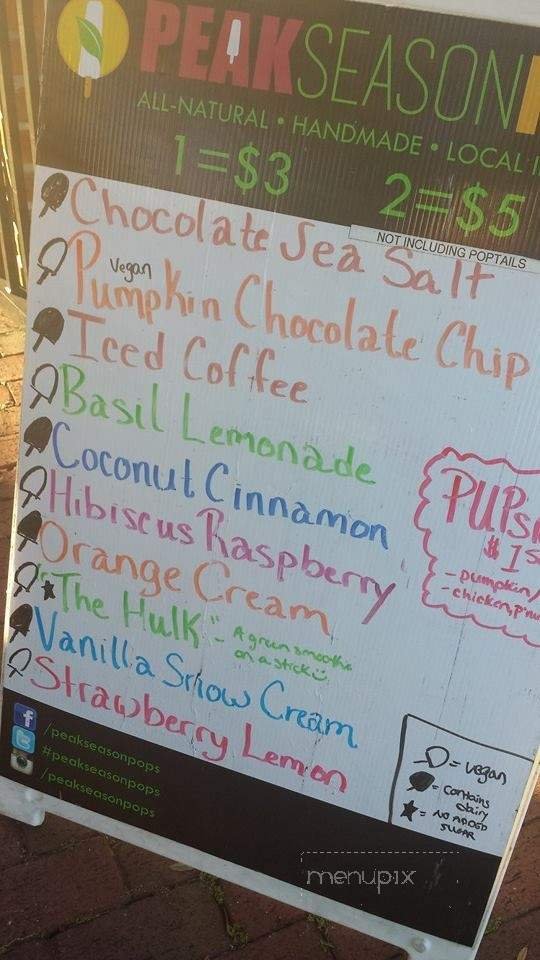 PEAKSEASON
ALL-NATURAL • HANDMADE • LOCAL
1=$3 2=$5
NOT INCLUDING POPTAILS
Chocolate Sea Salt
Vegan
Pumpkin Chocolate Chip
Iced Coffee
Basil Lemonade
Coconut Cinnamon
Hibiscus Raspberry
Orange Cream
"The Hulk" - A green smoothie
on a stick
Vanilla Snow Cream
Strawberry Lemon
PUPs
$1
- pumpkin/
- chicken, p'nu
= vegan
= contains
dairy
= NO ADDED
SUGAR
/peakseasonpops
#peakseasonpops
/peakseasonpops
menupix